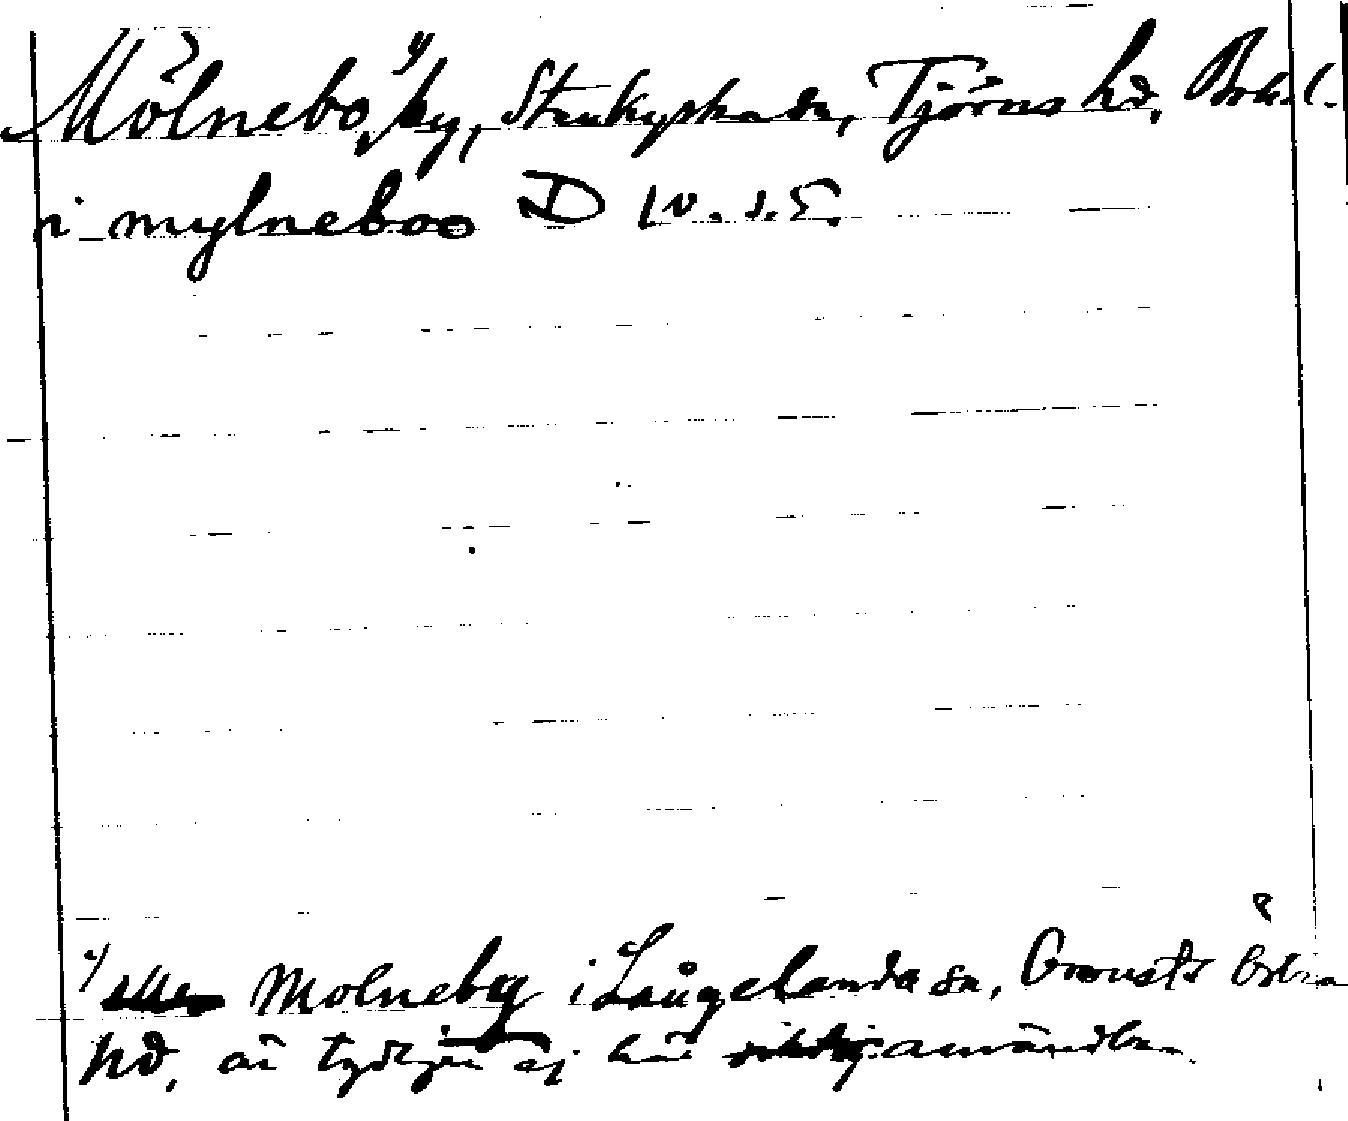 Mölnebo, ¹⁾ by, Stenkyrka sn, Tjörns hd, Bohusl.
i mylneboo D IV. s. 5.
¹⁾ Molneby i Långelanda sn, Orousts Östra
hd, är tydligen ej här användbar.